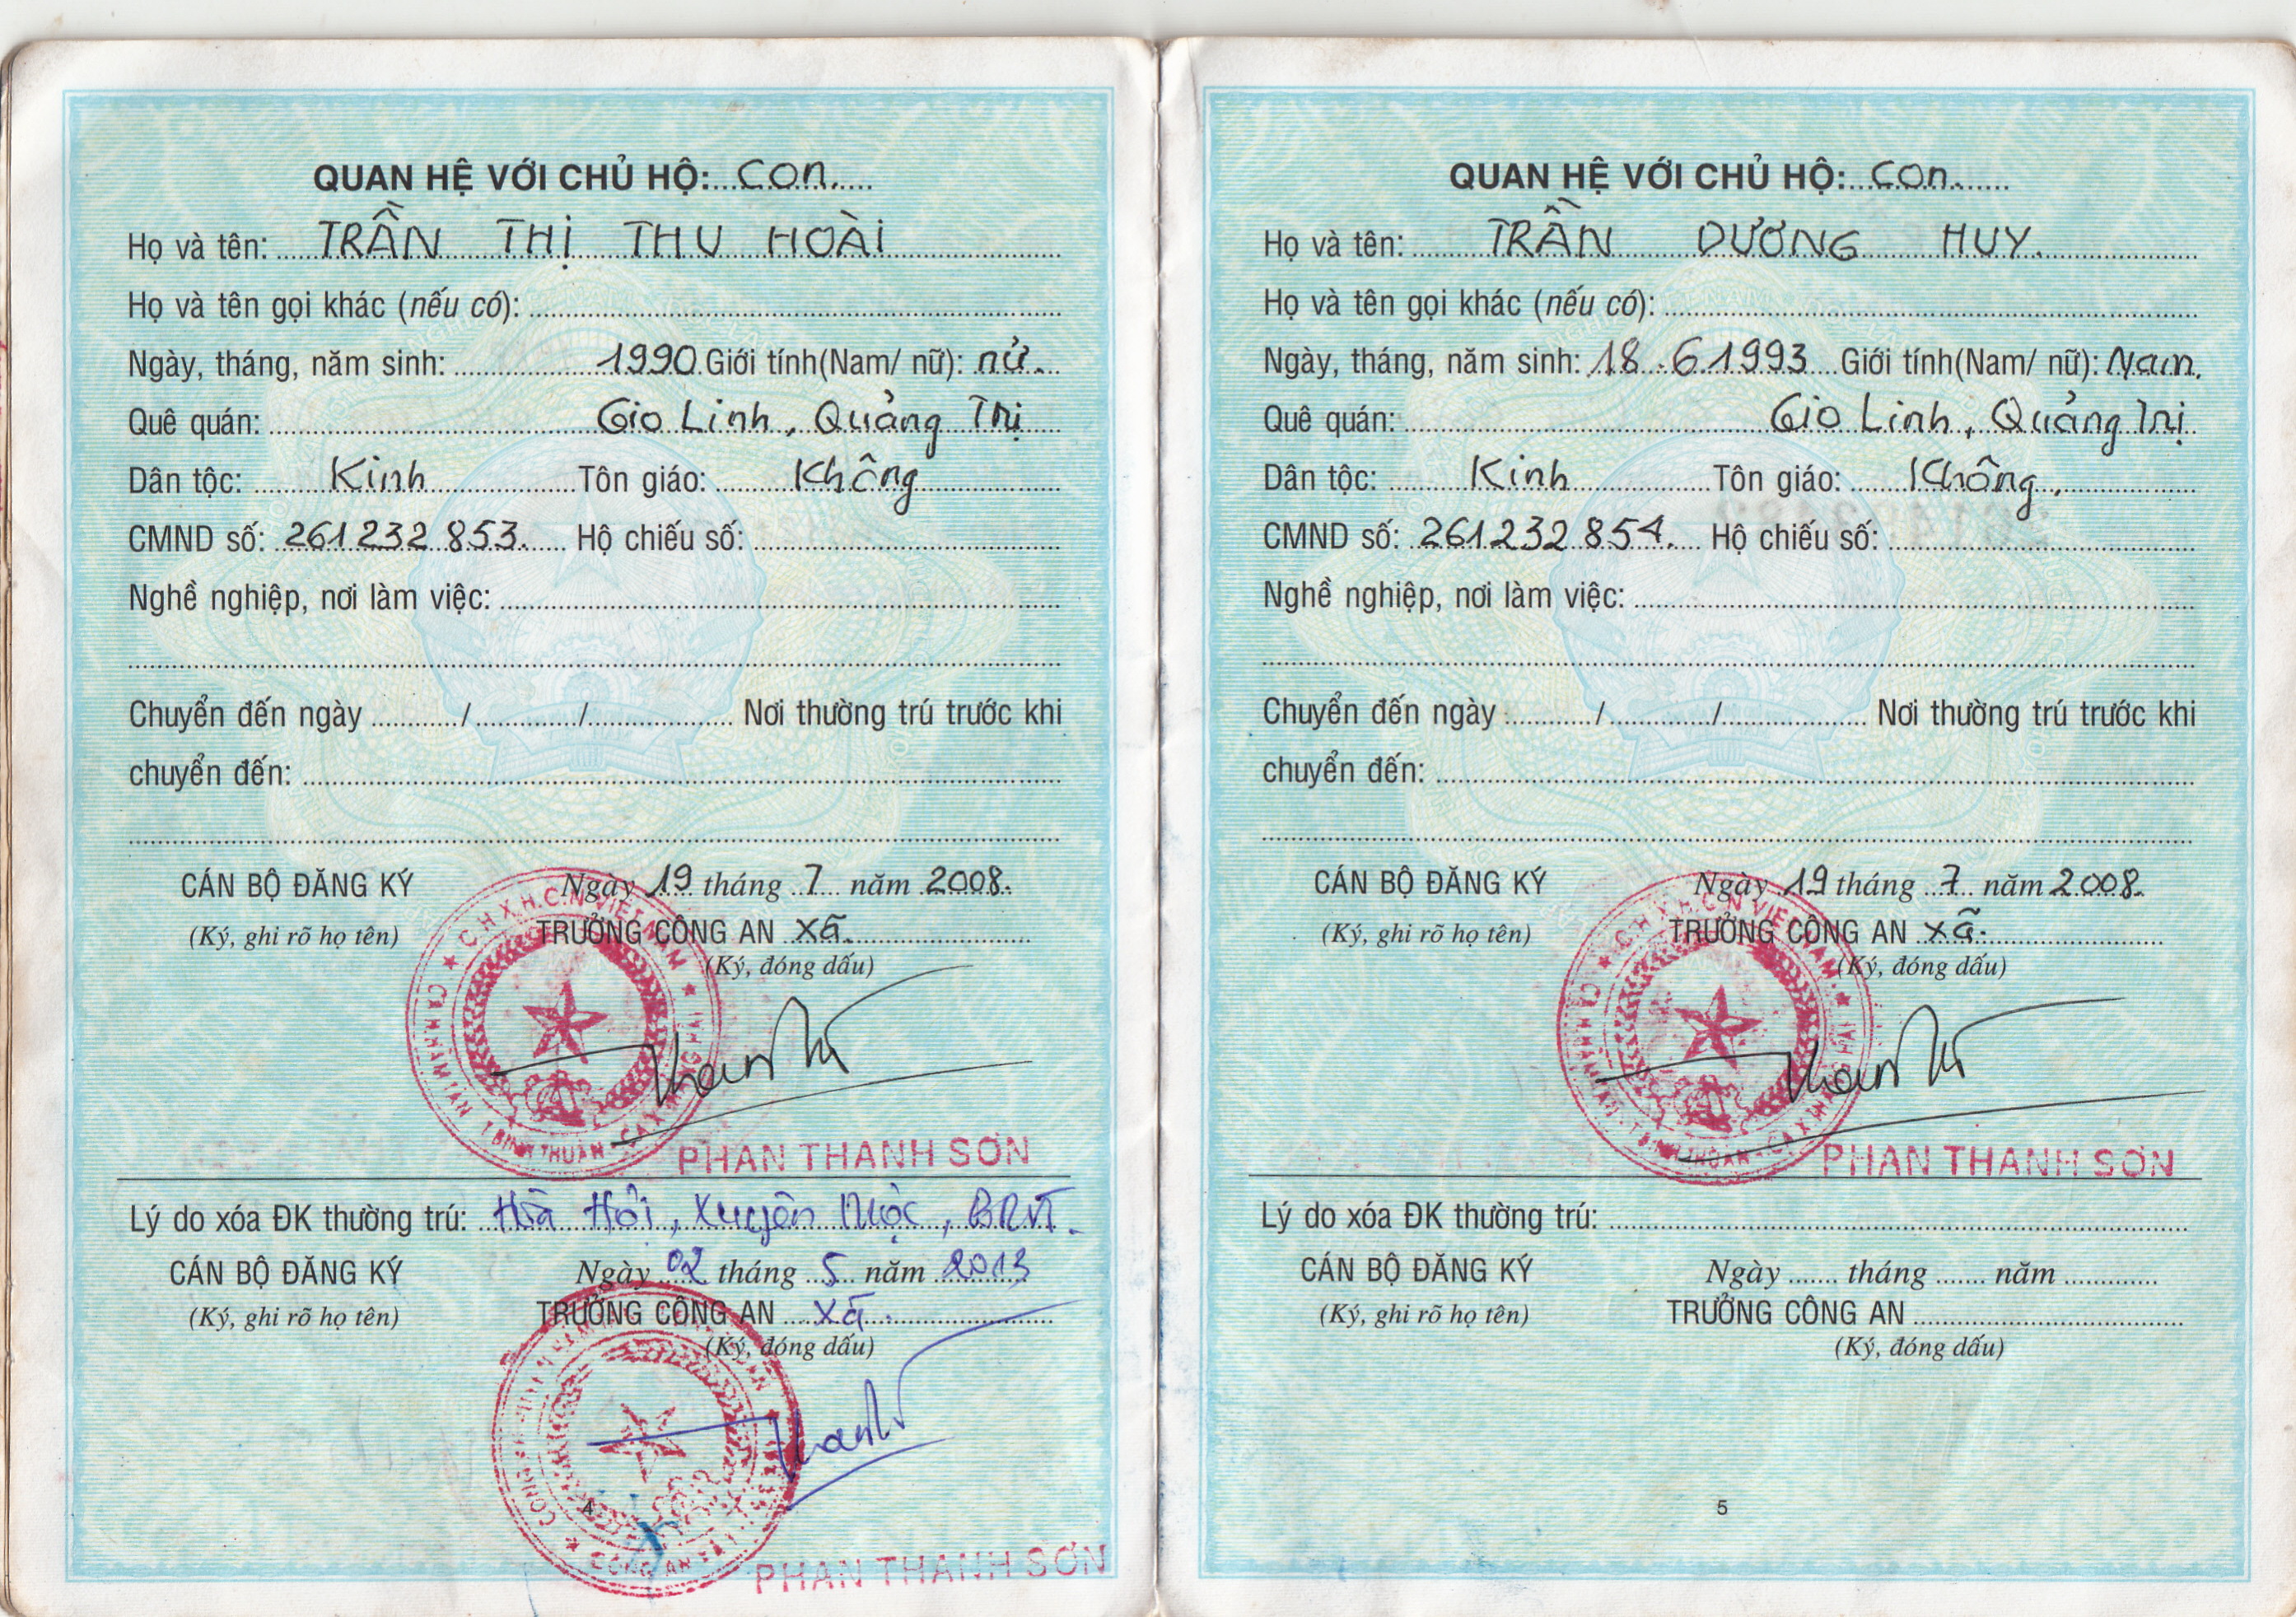 QUAN HỆ VỚI CHỦ HỘ: Con.
Họ và tên: TRẦN THỊ THU HOÀI
Họ và tên gọi khác (nếu có):
Ngày, tháng, năm sinh: 1990 Giới tính(Nam/ nữ): nử.
Quê quán: Gio Linh, Quảng Trị
Dân tộc: Kinh Tôn giáo: Không
CMND số: 261232853. Hộ chiếu số:
Nghề nghiệp, nơi làm việc:
Chuyển đến ngày / / Nơi thường trú trước khi
chuyển đến:
CÁN BỘ ĐĂNG KÝ Ngày 19 tháng 7 năm 2008.
(Ký, ghi rõ họ tên) TRƯỞNG CÔNG AN xã.
(Ký, đóng dấu)
C.H.X.H.C.N VIỆT NAM
T.BÌNH THUẬN
PHAN THANH SƠN
Lý do xóa ĐK thường trú: Hòa Hội, Xuyên Mộc, BRVT.
CÁN BỘ ĐĂNG KÝ Ngày 02 tháng 5 năm 2013
(Ký, ghi rõ họ tên) TRƯỞNG CÔNG AN xã.
(Ký, đóng dấu)
4
PHAN THANH SƠN
QUAN HỆ VỚI CHỦ HỘ: Con.
Họ và tên: TRẦN DƯƠNG HUY.
Họ và tên gọi khác (nếu có):
Ngày, tháng, năm sinh: 18.6 1993 Giới tính(Nam/ nữ): Nam.
Quê quán: Gio Linh, Quảng Trị
Dân tộc: Kinh Tôn giáo: Không.
CMND số: 261232854. Hộ chiếu số:
Nghề nghiệp, nơi làm việc:
Chuyển đến ngày / / Nơi thường trú trước khi
chuyển đến:
CÁN BỘ ĐĂNG KÝ Ngày 19 tháng 7 năm 2008.
(Ký, ghi rõ họ tên) TRƯỞNG CÔNG AN xã.
(Ký, đóng dấu)
C.H.X.H.C.N VIỆT NAM
PHAN THANH SƠN
Lý do xóa ĐK thường trú:
CÁN BỘ ĐĂNG KÝ Ngày tháng năm
(Ký, ghi rõ họ tên) TRƯỞNG CÔNG AN
(Ký, đóng dấu)
5